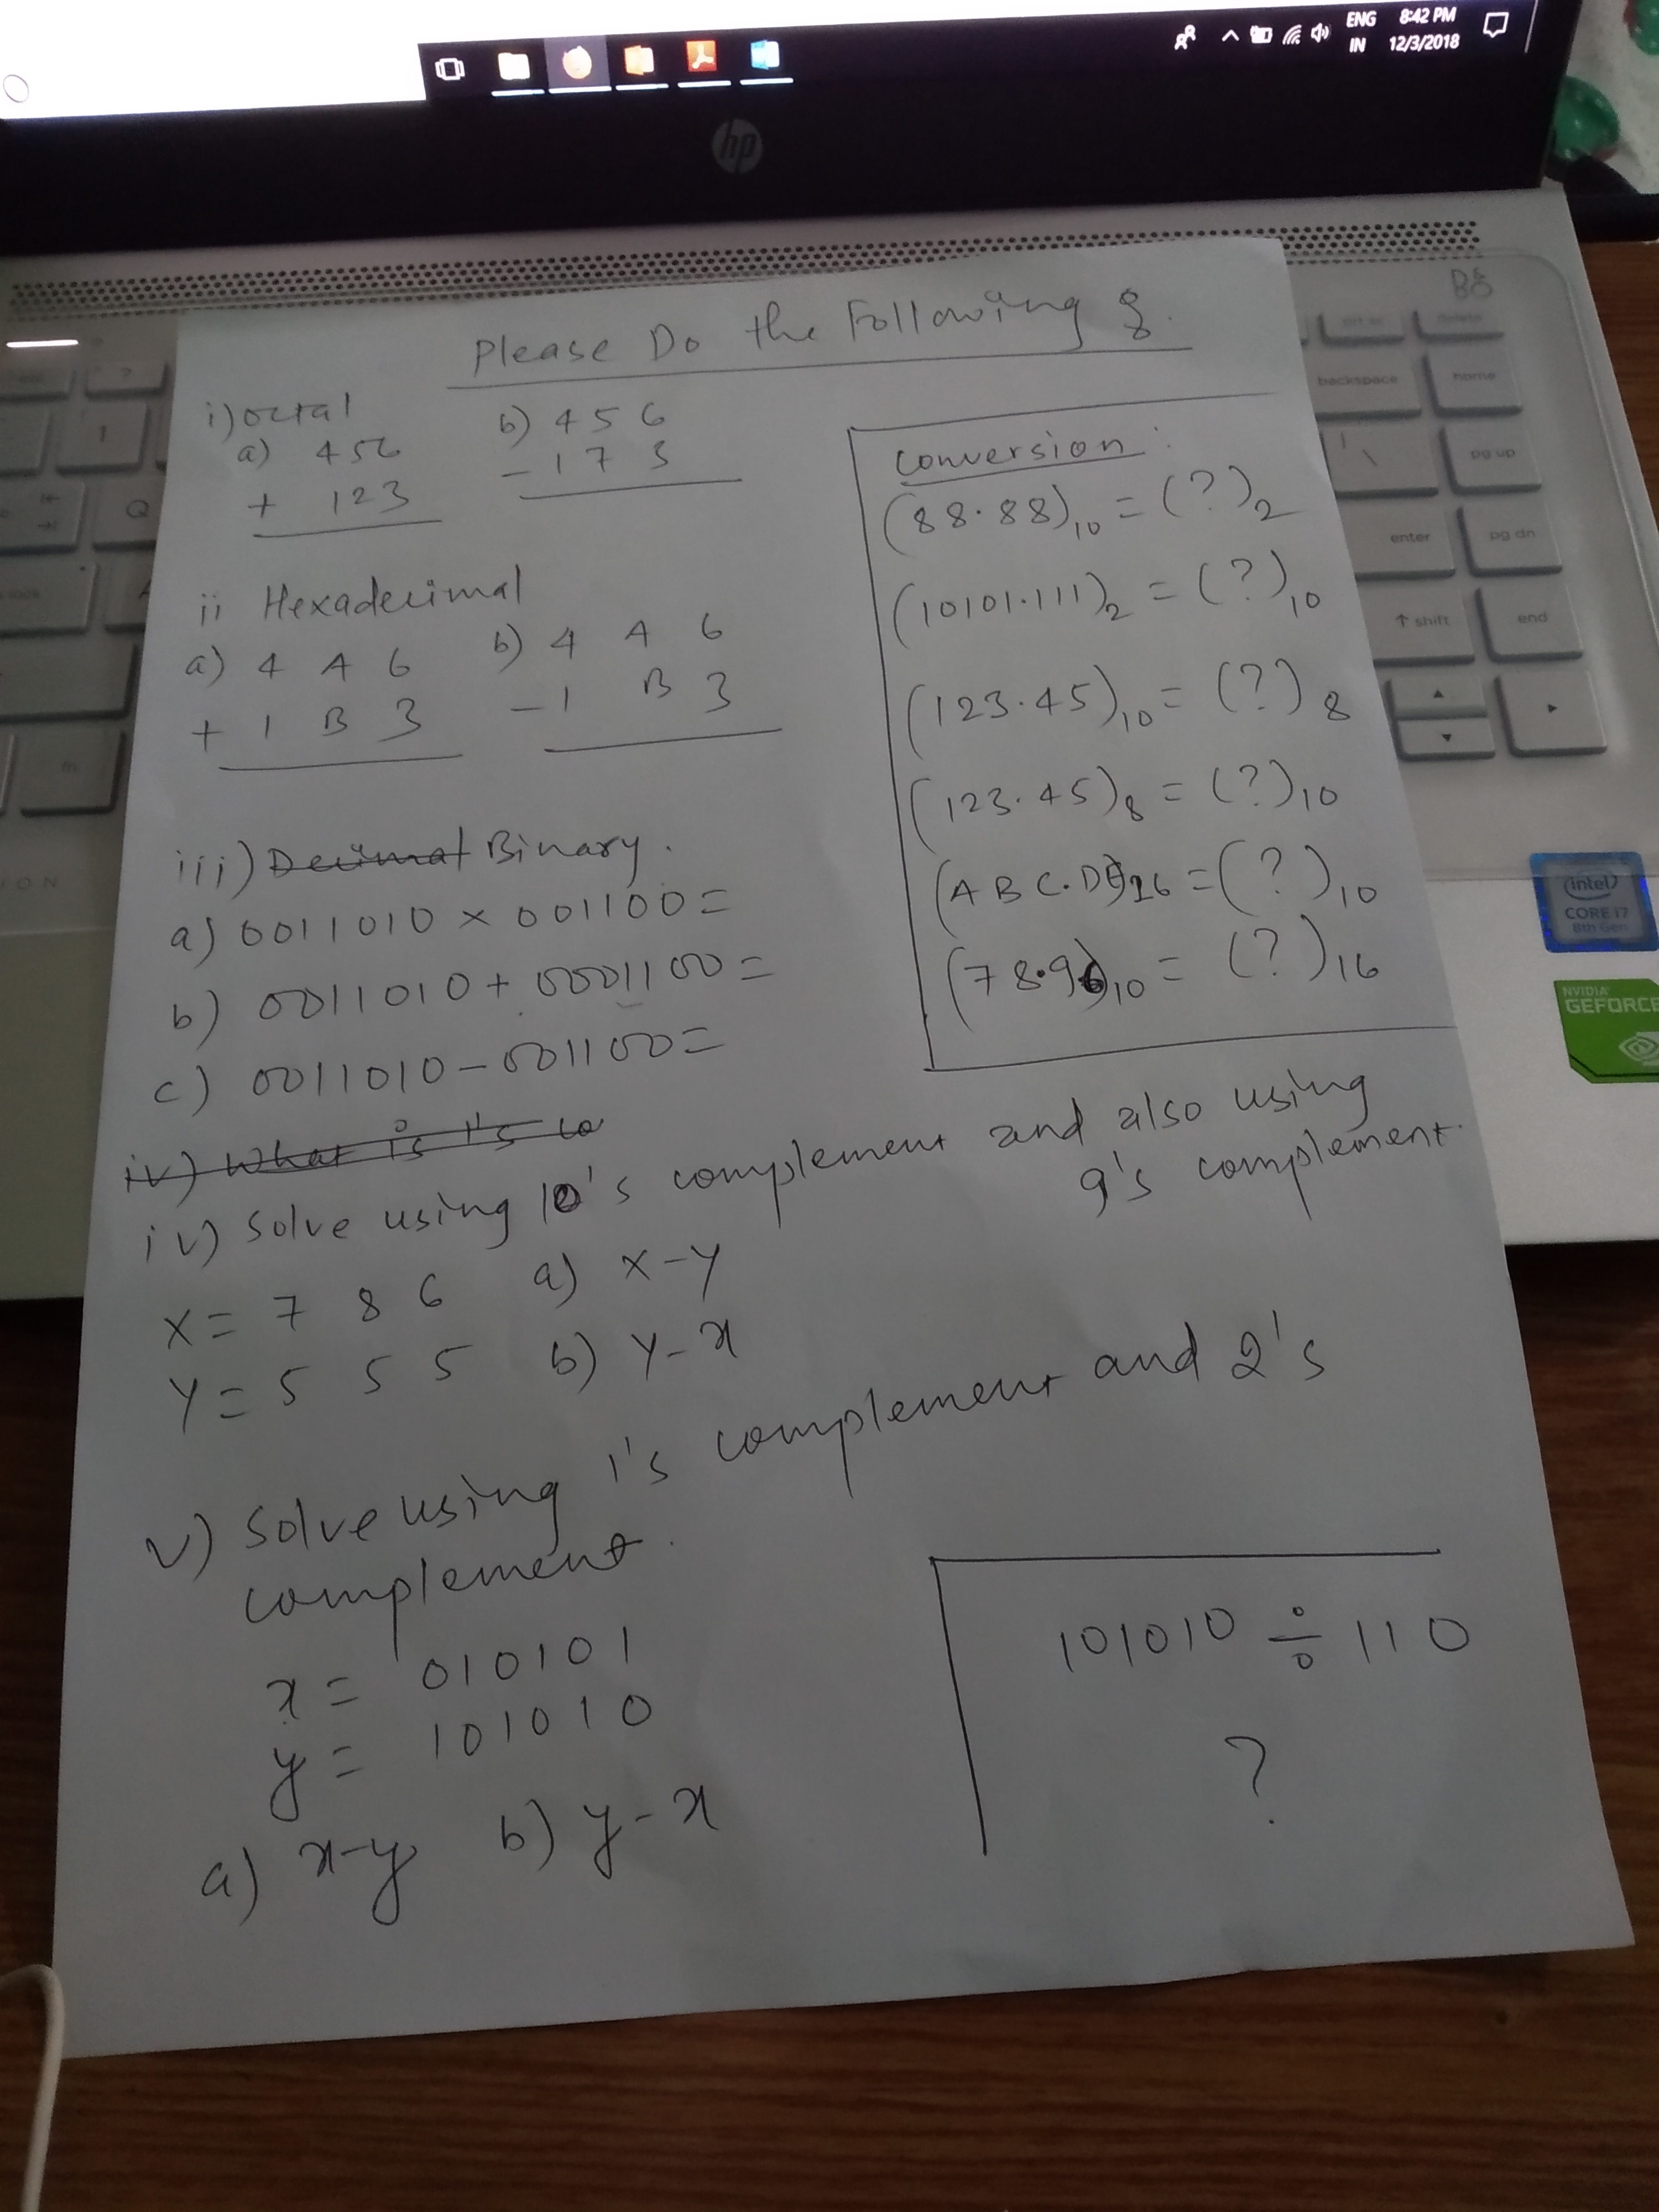 ENG 8:42 PM
IN 12/3/2018
hp
B&
BO
Please Do the Following :
i) octal
a) 456
+ 123
b) 456
- 173
ii Hexadecimal
a) 4 A 6
+ 1 B 3
b) 4 A 6
- 1 B 3
iii) Decimal Binary.
a) 0011010 × 001100 =
b) 0011010 + 0001100 =
c) 0011010 - 001100 =
iv) What is 1's co
iv) Solve using 10's complement and also using
9's complement.
X = 7 8 6 a) X-Y
Y = 5 5 5 b) Y-X
v) Solve using 1's complement and 2's
complement.
x = 010101
y = 101010
a) x-y b) y-x
Conversion :
(88.88)10 = (?)2
(10101.111)2 = (?)10
(123.45)10 = (?)8
(123.45)8 = (?)10
(ABC.DE)16 = (?)10
(78.96)10 = (?)16
101010 ÷ 110
?
backspace
home
pg up
enter
pg dn
↑ shift
end
fn
Q
1
\
delete
(intel)
CORE i7
8th Gen
NVIDIA
GEFORCE